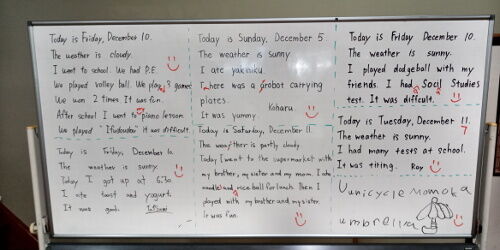 Today is Friday, December 10.
The weather is cloudy.
I went to school. We had P.E.
We played volley ball. We play 3 games
We won 2 times. It was fun.
After school I went to piano lesson.
We played It was difficult.
Today is Friday, December 10.
The weather is sunny.
Today I got up at 6:30
I ate toast and yogurt.
It was good.
Today is Sunday, December 5
The weather is sunny.
I ate yakiniku.
There was a robot carrying
plates.
It was yummy. Koharu
Today is Saturday, December 11
The weather is partly cloudy
Today I went to the supermarket with
my brother, my sister and my mom. I ate
noodle and rice ball for lunch. Then I
played with my brother and my sister.
It was fun.
Today is Friday December 10.
The weather is sunny.
I played dodgeball with my
friends. I had Socil Studies
test. It was difficult.
Today is Tuesday, December 11.
7
The weather is sunny.
I had many tests at school.
It was titing. Roy
Uunicycle Momoka
umbrella